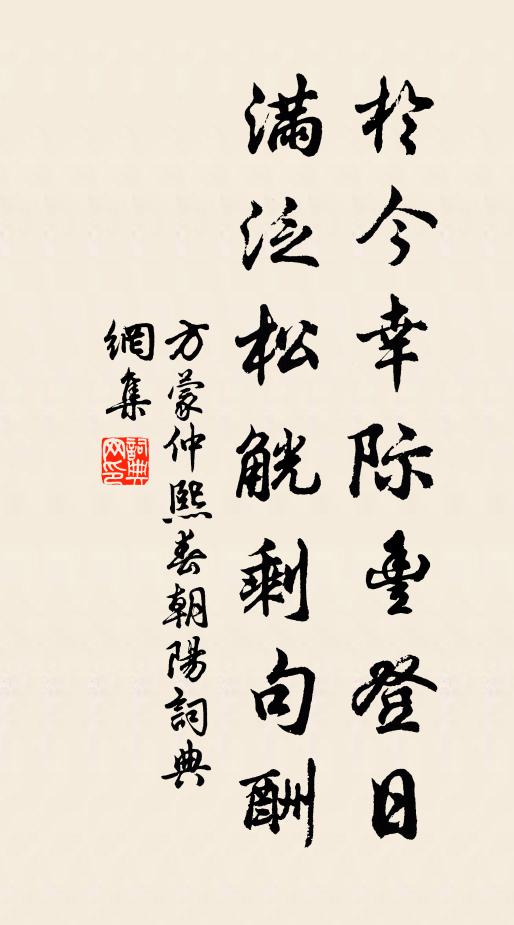 於今幸际豊登日
满泛松觥剩句酬
方蒙仲熙春朝陽詞典
網集
詞典网印